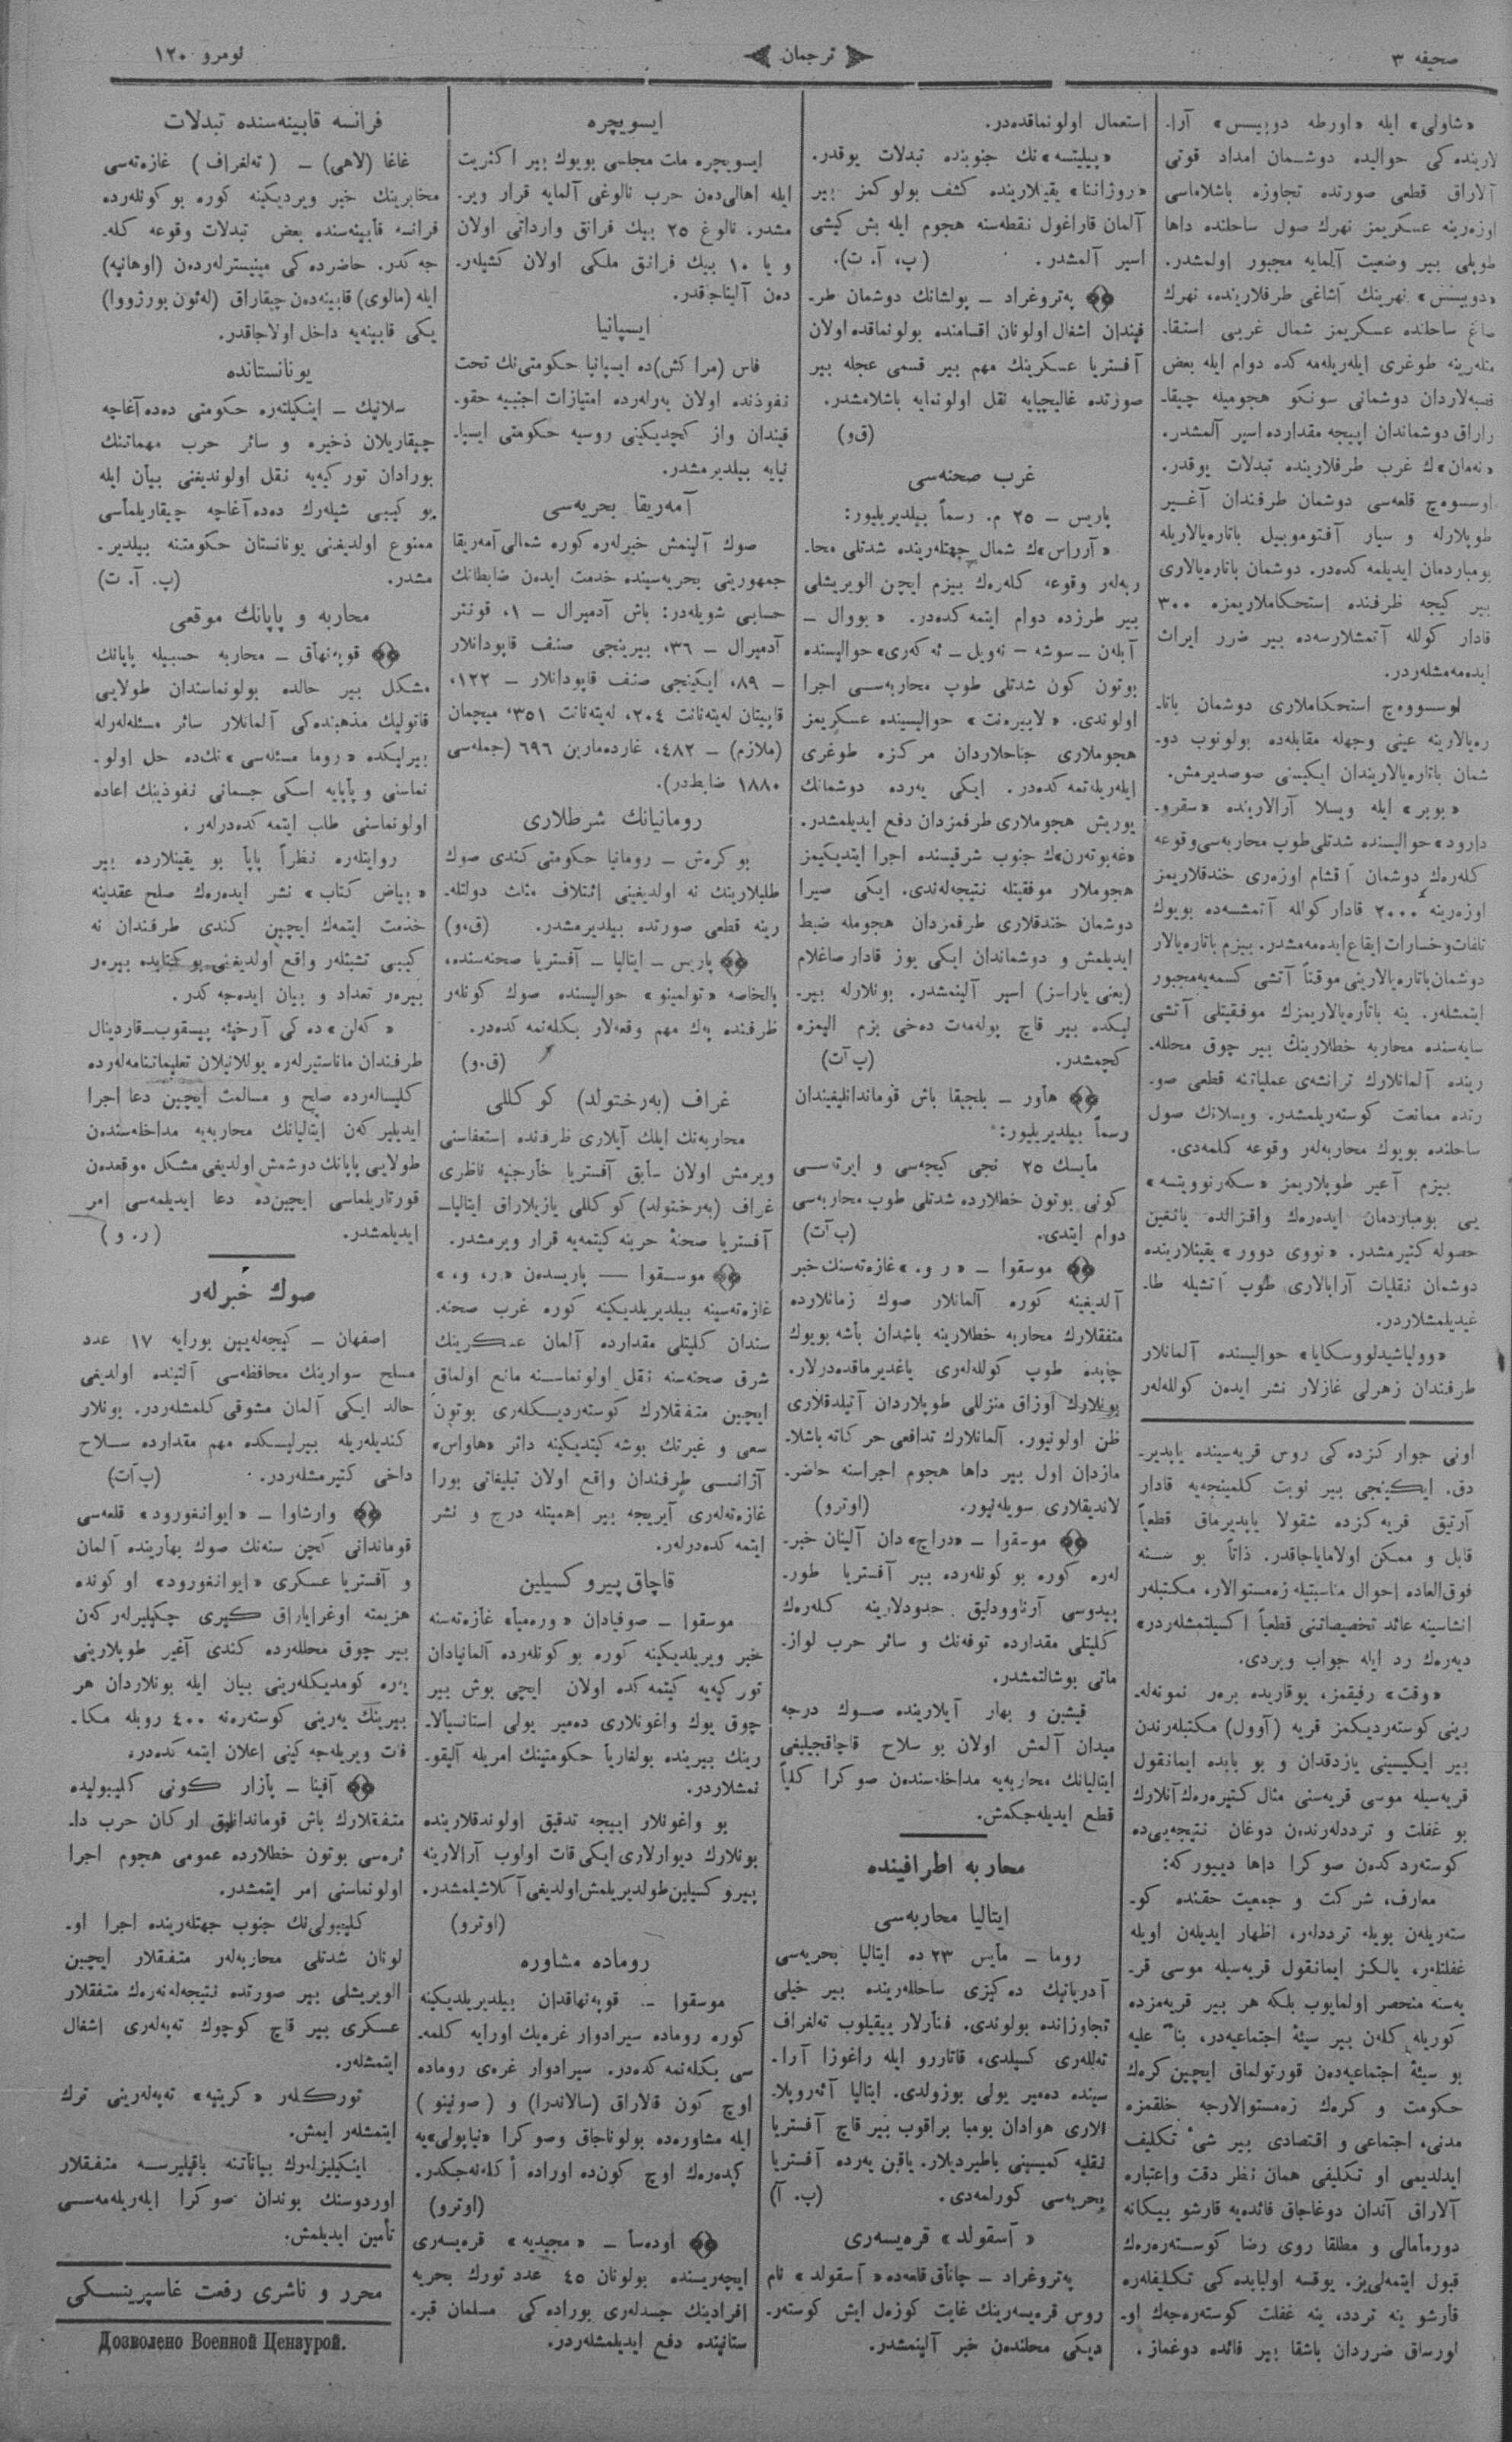 صحیفه ۳
ترجمان
نومرو ۱۲۰
«شاولی» ایله «اورطه دوبیسس» آرا-
لارینده‌کی حوالیده دوشمان امداد قوتی
آلاراق قطعی صورتده تجاوزه باشلاماسی
اوزه‌رینه عسکریمز نهرك صول ساحلنده داها
طویلی بیر وضعیت آلمایه مجبور اولمشدر.
«دوبیسس» نهرینك آشاغی طرفلارینده، نهرك
صاغ ساحلنده عسکریمز شمال غربی استقا-
متله‌رینه طوغری ایله‌ریله‌مه‌كده دوام ایله بعض
قصبه‌لاردان دوشمانی سونکو هجومیله چیقا-
راراق دوشماندان ایپیجه مقدارده اسیر آلمشدر.
«نه‌مان»ك غرب طرفلارینده تبدلات یوقدر.
اوسسوویچ قلعه‌سی دوشمان طرفندان آغیر
طوپلارله و سیار آفتوموبیل باتاره‌یالاریله
بومباردمان ایدیلمه‌كده‌در. دوشمان باتاره‌یالاری
بیر کیجه ظرفنده استحکاملاریمزه ۳۰۰
قادار کولله آتمشلارسه‌ده بیر ضرر ایراث
ایده‌مه‌مشله‌ردر.
لوسسوویچ استحکاملاری دوشمان باتا-
ره‌یالارینه عینی وجهله مقابله‌ده بولونوب دو-
شمان باتاره‌یالاریندان ایکیسنی صوصدیرمش.
«بوبر» ایله ویسلا آرالارینده «سقرو-
دارود» حوالیسنده شدتلی طوپ محاربه‌سی وقوعه
کله‌رك دوشمان آقشام اوزه‌ری خندقلاریمز
اوزه‌رینه ۲۰۰۰ قادار کولله آتمشسه‌ده بویوك
تلفات و خسارات ایقاع ایده‌مه‌مشدر. بیزم باتاره‌یالار
دوشمان باتاره‌یالارینی موقتاً آتشی کسمه‌یه مجبور
ایتمشله‌ر. ینه باتاره‌یالاریمزك موفقیتلی آتشی
سایه‌سنده محاربه خطلارینك بیر چوق محلله-
رینده آلمانلارك ترانشه‌ی عملیاتنه قطعی صو-
رتده ممانعت کوسته‌ریلمشدر. ویسلانك صول
ساحلنده بویوك محاربه‌له‌ر وقوعه کلمه‌دی.
بیزم آغیر طوپلاریمز «سکه‌رنوویتسه»
یی بومباردمان ایده‌رك واقزالده یانغین
حصوله کتیرمشدر. «نووی دوور» یقینلارینده
دوشمان نقلیات آرابالاری طوپ آتشیله طا-
غیدیلمشلاردر.
«وولیاشیدلووسکایا» حوالیسنده آلمانلار
طرفندان زهرلی غازلار نشر ایدن کولله‌له‌ر
اونی جوارکزده‌کی روس قریه‌سینده یاپدیر-
دق. ایکینجی بیر نوبت کلمینجه‌یه قادار
آرتیق قریه‌کزده شقولا یاپدیرماق قطعیاً
قابل و ممکن اولامایاجاقدر. ذاتاً بو سنه
فوق‌العاده احوال مناسبتیله زه‌مستوالار، مکتبلر
انشاسینه عائد تخصیصاتنی قطعیاً اکسیلتمشله‌ردر»
دیه‌رك رد ایله جواب ویردی.
«وقت» رفیقمز، یوقاریده برر نمونه‌له-
رینی کوستردیکمز قریه (آوول) مکتبله‌رندن
بیر ایکیسینی یازدقدان و بو بابده ایمانقول
قریه‌سیله موسی قریه‌سنی مثال کتیره‌رك آنلارك
بو غفلت و ترددله‌رندن دوغان نتیجه‌یی‌ده
کوستردکدن صوکرا داها دییورکه:
معارف، شرکت و جمعیت حقنده کو-
ستریله‌ن بویله ترددلر، اظهار ایدیله‌ن اویله
غفلتلر، یالکز ایمانقول قریه‌سیله موسی قر-
یه‌سنه منحصر اولمایوب بلکه هر بیر قریه‌مزده
کوریله کله‌ن بیر سیئۀ اجتماعیه‌در، بناءً علیه
بو سیئۀ اجتماعیه‌دن قورتولماق ایچین کره‌ك
حکومت و کره‌ك زه‌مستوالارجه خلقمزه
مدنی، اجتماعی و اقتصادی بیر شیء تکلیف
ایدلدیمی او تکلیفی همان نظر دقت واعتباره
آلاراق آندان دوغاجاق فائده‌یه قارشو بیکانه
دورمامالی و مطلقا روی رضا کوستره‌رك
قبول ایتمه‌لی‌یز. یوقسه اولیابده‌کی تکلیفله‌ره
قارشو ینه تردد، ینه غفلت کوستره‌جك او-
لورساق ضرردان باشقا بیر فائده دوغماز.
استعمال اولونماقده‌در.
«پیلیتسه»نك جنوبنده تبدلات یوقدر.
«روژاننا» یقینلارینده کشف بولوکمز بیر
آلمان قاراغول نقطه‌سنه هجوم ایله بش کیشی
اسیر آلمشدر. (پ، آ. ت).
پتروغراد – پولشانك دوشمان طر-
فیندان اشغال اولونان اقسامنده بولونماقده اولان
آفستریا عسکرینك مهم بیر قسمی عجله بیر
صورتده غالیچیایه نقل اولونمایه باشلامشدر.
(ق‌و)
غرب صحنه‌سی
پاریس – ۲۵ م. رسماً بیلدیریلیور:
«آرراس»ك شمال جهتله‌رینده شدتلی محا-
ربه‌له‌ر وقوعه کله‌رك بیزم ایچن الویریشلی
بیر طرزده دوام ایتمه‌كده‌در. «بووال –
آبله‌ن – سوشه – نه‌ویل – ئه‌کوری» حوالیسنده
بوتون کون شدتلی طوپ محاربه‌سی اجرا
اولوندی. «لابیرنت» حوالیسینده عسکریمز
هجوملاری جناحلاردان مرکزه طوغری
ایله‌ریله‌تمه‌كده‌در. ایکی یه‌رده دوشمانك
یوریش هجوملاری طرفمزدان دفع ایدیلمشدر.
«غه‌بوته‌رن»ك جنوب شرقیسنده اجرا ایتدیکیمز
هجوملار موفقیتله نتیجه‌له‌ندی. ایکی صیرا
دوشمان خندقلاری طرفمزدان هجومله ضبط
ایدیلمش و دوشماندان ایکی یوز قادار صاغلام
(یعنی یاراسز) اسیر آلینمشدر. بونلارله بیر-
لیکده بیر قاچ پوله‌مه‌ت دخی بزم الیمزه
کچمشدر. (پ آت)
هاور – بلجیقا باش قوماندانلیغیندان
رسماً بیلدیریلیور:
مأیسك ۲۵ نجی کیجه‌سی و ایرته‌سی
کونی بوتون خطلارده شدتلی طوپ محاربه‌سی
دوام ایتدی. (پ آت)
موسقوا – «ر و.» غازه‌ته‌سنك خبر
آلدیغینه کوره آلمانلار صوك زمانلارده
متفقلارك محاربه خطلارینه باشدان باشه بویوك
چاپده طوپ کولله‌له‌ری یاغدیرماقده‌درلار.
بونلارك اوزاق منزللی طوپلاردان آتیلدقلاری
ظن اولونیور. آلمانلارك تدافعی حرکاته باشلا-
مازدان اول بیر داها هجوم اجراسنه حاضر-
لاندیقلاری سویله‌نیور. (اوترو)
موسقوا – «دراچ» دان آلینان خبر-
له‌ره کوره بو کونله‌رده بیر آفستریا طور-
پیدوسی آرناوودلیق حدودلارینه کله‌رك
کلیتلی مقدارده توفه‌نك و سائر حرب لواز-
ماتی بوشالتمشدر.
قیشین و بهار آیلارینده صوك درجه
میدان آلمش اولان بو سلاح قاچاقجیلیغی
ایتالیانك محاربه‌یه مداخله‌سندن صوکرا کلیاً
قطع ایدیله‌جکمش.
محاربه اطرافینده
ایتالیا محاربه‌سی
روما – مأیس ۲۳ ده ایتالیا بحریه‌سی
آدریاتیك ده‌کیزی ساحللرینده بیر خیلی
تجاوزانده بولوندی. فنارلار ییقیلوب ته‌لغراف
ته‌لله‌ری کسیلدی، قاتاررو ایله راغوزا آرا-
سینده دمیر یولی بوزولدی. ایتالیا آئه‌روپلا-
نلاری هوادان بومبا براقوب بیر قاچ آفستریا
نقلیه کمیسینی باطیردیلار. یاقین یه‌رده آفستریا
بحریه‌سی کورلمه‌دی. (پ. آ)
«آسقولد» قره‌یسه‌ری
پتروغراد – چاناق قلعه‌ده «آسقولد» نام
روس قره‌یسه‌رینك غایت کوزه‌ل ایش کوستر-
دیکی محلندن خبر آلینمشدر.
ایسویچره
ایسویچره ملت مجلسی بویوك بیر اکثریت
ایله اهالی‌دن حرب نالوغی آلمایه قرار ویر-
مشدر. نالوغ ۲۵ بیك فرانق وارداتی اولان
و یا ۱۰ بیك فرانق ملکی اولان کشیله‌ر-
دن آلیناجاقدر.
ایسپانیا
فاس (مراکش)ده ایسپانیا حکومتی‌نك تحت
نفوذنده اولان یه‌رله‌رده امتیازات اجنبیه حقو-
قیندان واز کچدیکینی روسیه حکومتی ایسپا-
نیایه بیلدیرمشدر.
آمه‌ریقا بحریه‌سی
صوك آلینمش خبرله‌ره کوره شمالی آمه‌ریقا
جمهوریتی بحریه‌سینده خدمت ایده‌ن ضابطانك
حسابی شویله‌در: باش آدمیرال – ۱، قونتر
آدمیرال – ۳۶، بیرینجی صنف قاپودانلار
– ۸۹، ایکینجی صنف قاپودانلار – ۱۲۲،
قاپیتان له‌یته‌نانت ۲۰۴، له‌یته‌نانت ۳۵۱، میچمان
(ملازم) – ۴۸۲، غارده‌مارین ۶۹۶ (جمله‌سی
۱۸۸۰ ضابطدر).
رومانیانك شرطلاری
بوکره‌ش – رومانیا حکومتی کندی صوك
طلبلارینك نه اولدیغینی ائتلاف مثلث دولتله-
رینه قطعی صورتده بیلدیرمشدر. (ق‌و)
پاریس – ایتالیا – آفستریا صحنه‌سنده،
بالخاصه «تولمینو» حوالیسنده صوك کونله‌ر
ظرفنده پك مهم وقعه‌لار بکله‌نمه‌كده‌در.
(ق.و)
غراف (به‌رختولد) کوکللی
محاربه‌نك ایلك آیلاری ظرفنده استعفاسنی
ویرمش اولان سابق آفستریا خارجیه ناظری
غراف (به‌رختولد) کوکللی یازیلاراق ایتالیا-
آفستریا صحنۀ حربنه کیتمه‌یه قرار ویرمشدر.
موسقوا — پاریسدن «ر، و،»
غازه‌ته‌سینه بیلدیریلدیکینه کوره غرب صحنه-
سندان کلیتلی مقدارده آلمان عسکرینك
شرق صحنه‌سنه نقل اولونماسنه مانع اولماق
ایچین متفقلارك کوستردیکله‌ری بوتون
سعی و غیرتك بوشه کیتدیکینه دائر «هاواس»
آژانسی طرفندان واقع اولان تبلیغاتی بورا
غازه‌ته‌له‌ری آیریجه بیر اهمیتله درج و نشر
ایتمه‌كده‌درلر.
قاچاق پیروکسیلین
موسقوا – صوفیادان «وره‌میا» غازه‌ته‌سنه
خبر ویریلدیکینه کوره بو کونله‌رده آلمانیادان
تورکیه‌یه کیتمه‌كده اولان ایچی بوش بیر
چوق یوك واغونلاری دمیر یولی استانسیالا-
رینك بیرینده بولغاریا حکومتینك امریله آلیقو-
نمشلاردر.
بو واغونلار اییجه تدقیق اولوندقلارینده
بونلارك دیوارلاری ایکی قات اولوب آرالارینه
پیروکسیلین طولدیریلمش اولدیغی آکلاشیلمشدر.
(اوترو)
روماده مشاوره
موسقوا – قوپه‌نهاقدان بیلدیریلدیکینه
کوره روماده سیر ادوار غره‌یك اورایه کلمه-
سی بکله‌نمه‌كده‌در. سیر ادوار غره‌ی روماده
اوچ کون قالاراق (سالاندرا) و (صونینو)
ایله مشاوره‌ده بولوناجاق وصوکرا «ناپولی»یه
کیده‌رك اوچ کون‌ده اوراده اکله‌نه‌جکدر.
(اوترو)
اوده‌سا – «مجیدیه» قره‌یسه‌ری
ایچه‌ریسنده بولونان ۴۵ عدد تورك بحریه
افرادینك جسدله‌ری بوراده‌کی مسلمان قبر-
ستانینده دفع ایدیلمشله‌ردر.
فرانسه قابینه‌سنده تبدلات
غاغا (لاهی) – (ته‌لغراف) غازه‌ته‌سی
مخابرینك خبر ویردیکینه کوره بو کونله‌رده
فرانسه قابینه‌سنده بعض تبدلات وقوعه کله-
جه‌کدر. حاضرده‌کی مینیسترله‌ردن (اوهانیه)
ایله (مالوی) قابینه‌دن چیقاراق (له‌ئون بورژووا)
یکی قابینه‌یه داخل اولاجاقدر.
یونانستانده
سلانیك – اینکیلتره حکومتی دده آغاچه
چیقاریلان ذخیره و سائر حرب مهماتنك
بورادان تورکیه‌یه نقل اولوندیغنی بیان ایله
بو کیبی شیله‌رك دده آغاچه چیقاریلماسی
ممنوع اولدیغنی یونانستان حکومتنه بیلدیر-
مشدر. (پ. آ. ت)
محاربه و پاپانك موقعی
قوپه‌نهاق – محاربه حسبیله پاپانك
مشکل بیر حالده بولونماسندان طولایی
قاتولیك مذهبنده‌کی آلمانلار سائر مسئله‌له‌رله
بیرلیکده «روما مسئله‌سی»نك‌ده حل اولو-
نماسنی و پاپایه اسکی جسمانی نفوذینك اعاده
اولونماسنی طلب ایتمه‌كده‌درلر.
روایتله‌ره نظراً پاپا بو یقینلارده بیر
«بیاض کتاب» نشر ایده‌رك صلح عقدینه
خدمت ایتمه‌ك ایچین کندی طرفندان نه
کیبی تشبثله‌ر واقع اولدیغنی بو کتابده بیرر
بیره‌ر تعداد و بیان ایده‌جه‌کدر.
«که‌لن» ده‌کی آرخیه پیسقوپ-قاردینال
طرفندان ماناستیرله‌ره یوللانیلان تعلیماتنامه‌له‌رده
کلیسالارده صلح و مسالمت ایچین دعا اجرا
ایدیلیرکه‌ن ایتالیانك محاربه‌یه مداخله‌سندن
طولایی پاپانك دوشمش اولدیغی مشکل موقعدن
قورتاریلماسی ایچین‌ده دعا ایدیلمه‌سی امر
ایدیلمشدر. (ر. و)
صوك خبرله‌ر
اصفهان – کیجه‌له‌یین بورایه ۱۷ عدد
مسلح سوارینك محافظه‌سی آلتینده اولدیغی
حالد ایکی آلمان مشوقی کلمشله‌ردر. بونلار
کندیله‌ریله بیرلیکده مهم مقدارده سلاح
داخی کتیرمشله‌ردر. (پ آت)
وارشاوا – «ایوانغورود» قلعه‌سی
قوماندانی کچن سنه‌نك صوك بهارینده آلمان
و آفستریا عسکری «ایوانغورود» اوکونده
هزیمته اوغرایاراق کیری چکیلیرله‌رکه‌ن
بیر چوق محلله‌رده کندی آغیر طوپلارینی
یه‌ره کومدیکله‌رینی بیان ایله بونلاردان هر
بیرینك یه‌رینی کوستره‌نه ۴۰۰ روبله مکا-
فات ویریله‌جه‌کینی اعلان ایتمه‌كده‌در.
آفینا – پازار کونی کلیبولیده
متفقلارك باش قوماندانلیق ارکان حرب دا-
ئره‌سی بوتون خطلارده عمومی هجوم اجرا
اولونماسنی امر ایتمشدر.
کلیبولی‌نك جنوب جهتله‌رینده اجرا او-
لونان شدتلی محاربه‌له‌ر متفقلار ایچین
الویریشلی بیر صورتده نتیجه‌له‌نه‌رك متفقلار
عسکری بیر قاچ کوچوك ته‌په‌له‌ری اشغال
ایتمشله‌ر.
تورکله‌ر «کریتیه» ته‌په‌له‌رینی ترك
ایتمشله‌ر ایمش.
اینکیلیزله‌رك بیاناتنه باقیلیرسه متفقلار
اوردوسنك بوندان صوکرا ایله‌ریله‌مه‌سی
تأمین ایدیلمش.
محرر و ناشری رفعت غاسپرینسکی
Дозволено Военной Цензурой.